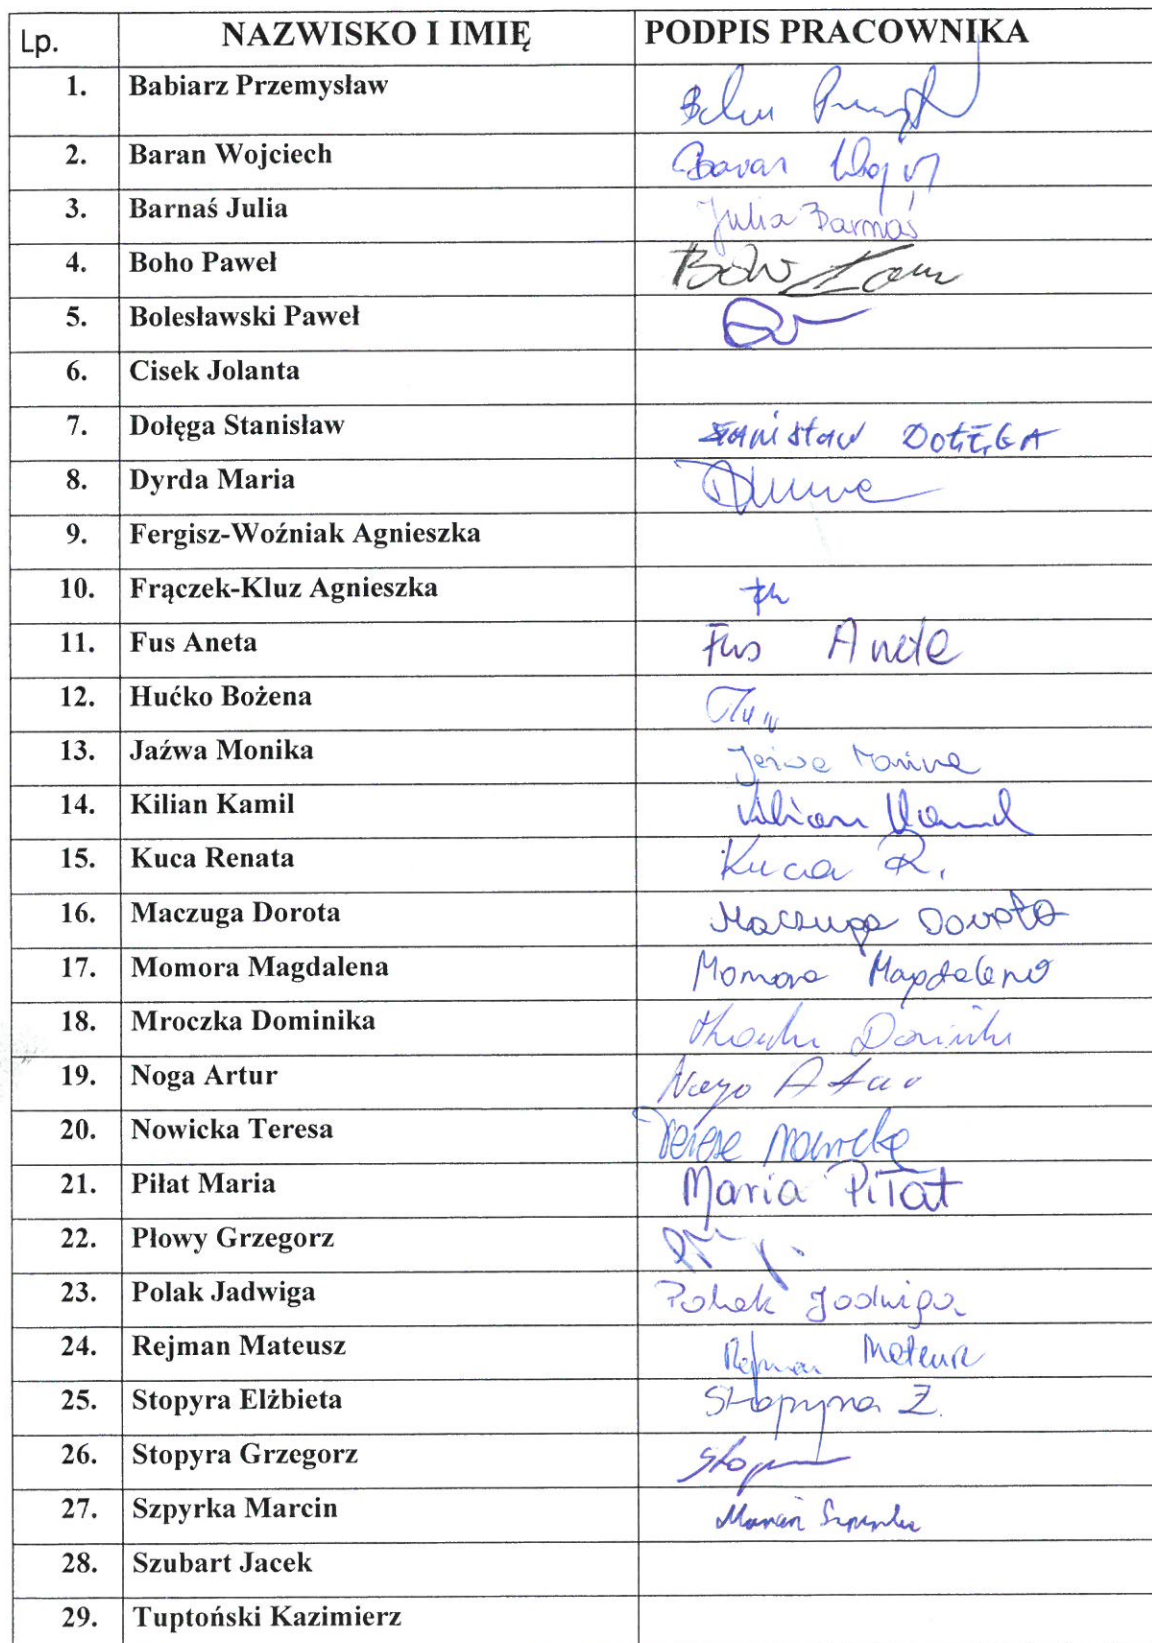 Lp. NAZWISKO I IMIĘ PODPIS PRACOWNIKA
1. Babiarz Przemysław
2. Baran Wojciech Baran
3. Barnaś Julia Julia Barnaś
4. Boho Paweł
5. Bolesławski Paweł
6. Cisek Jolanta
7. Dołęga Stanisław Stanisław DOŁĘGA
8. Dyrda Maria
9. Fergisz-Woźniak Agnieszka
10. Frączek-Kluz Agnieszka
11. Fus Aneta Fus Aneta
12. Hućko Bożena
13. Jaźwa Monika
14. Kilian Kamil Kilian Kamil
15. Kuca Renata Kuca R.
16. Maczuga Dorota Maczuga Dorota
17. Momora Magdalena Momora Magdalena
18. Mroczka Dominika
19. Noga Artur
20. Nowicka Teresa Teresa Nowicka
21. Piłat Maria Maria Piłat
22. Płowy Grzegorz
23. Polak Jadwiga Polak Jadwiga
24. Rejman Mateusz Rejman Mateusz
25. Stopyra Elżbieta Stopyra
26. Stopyra Grzegorz
27. Szpyrka Marcin Marcin Szpyrka
28. Szubart Jacek
29. Tuptoński Kazimierz